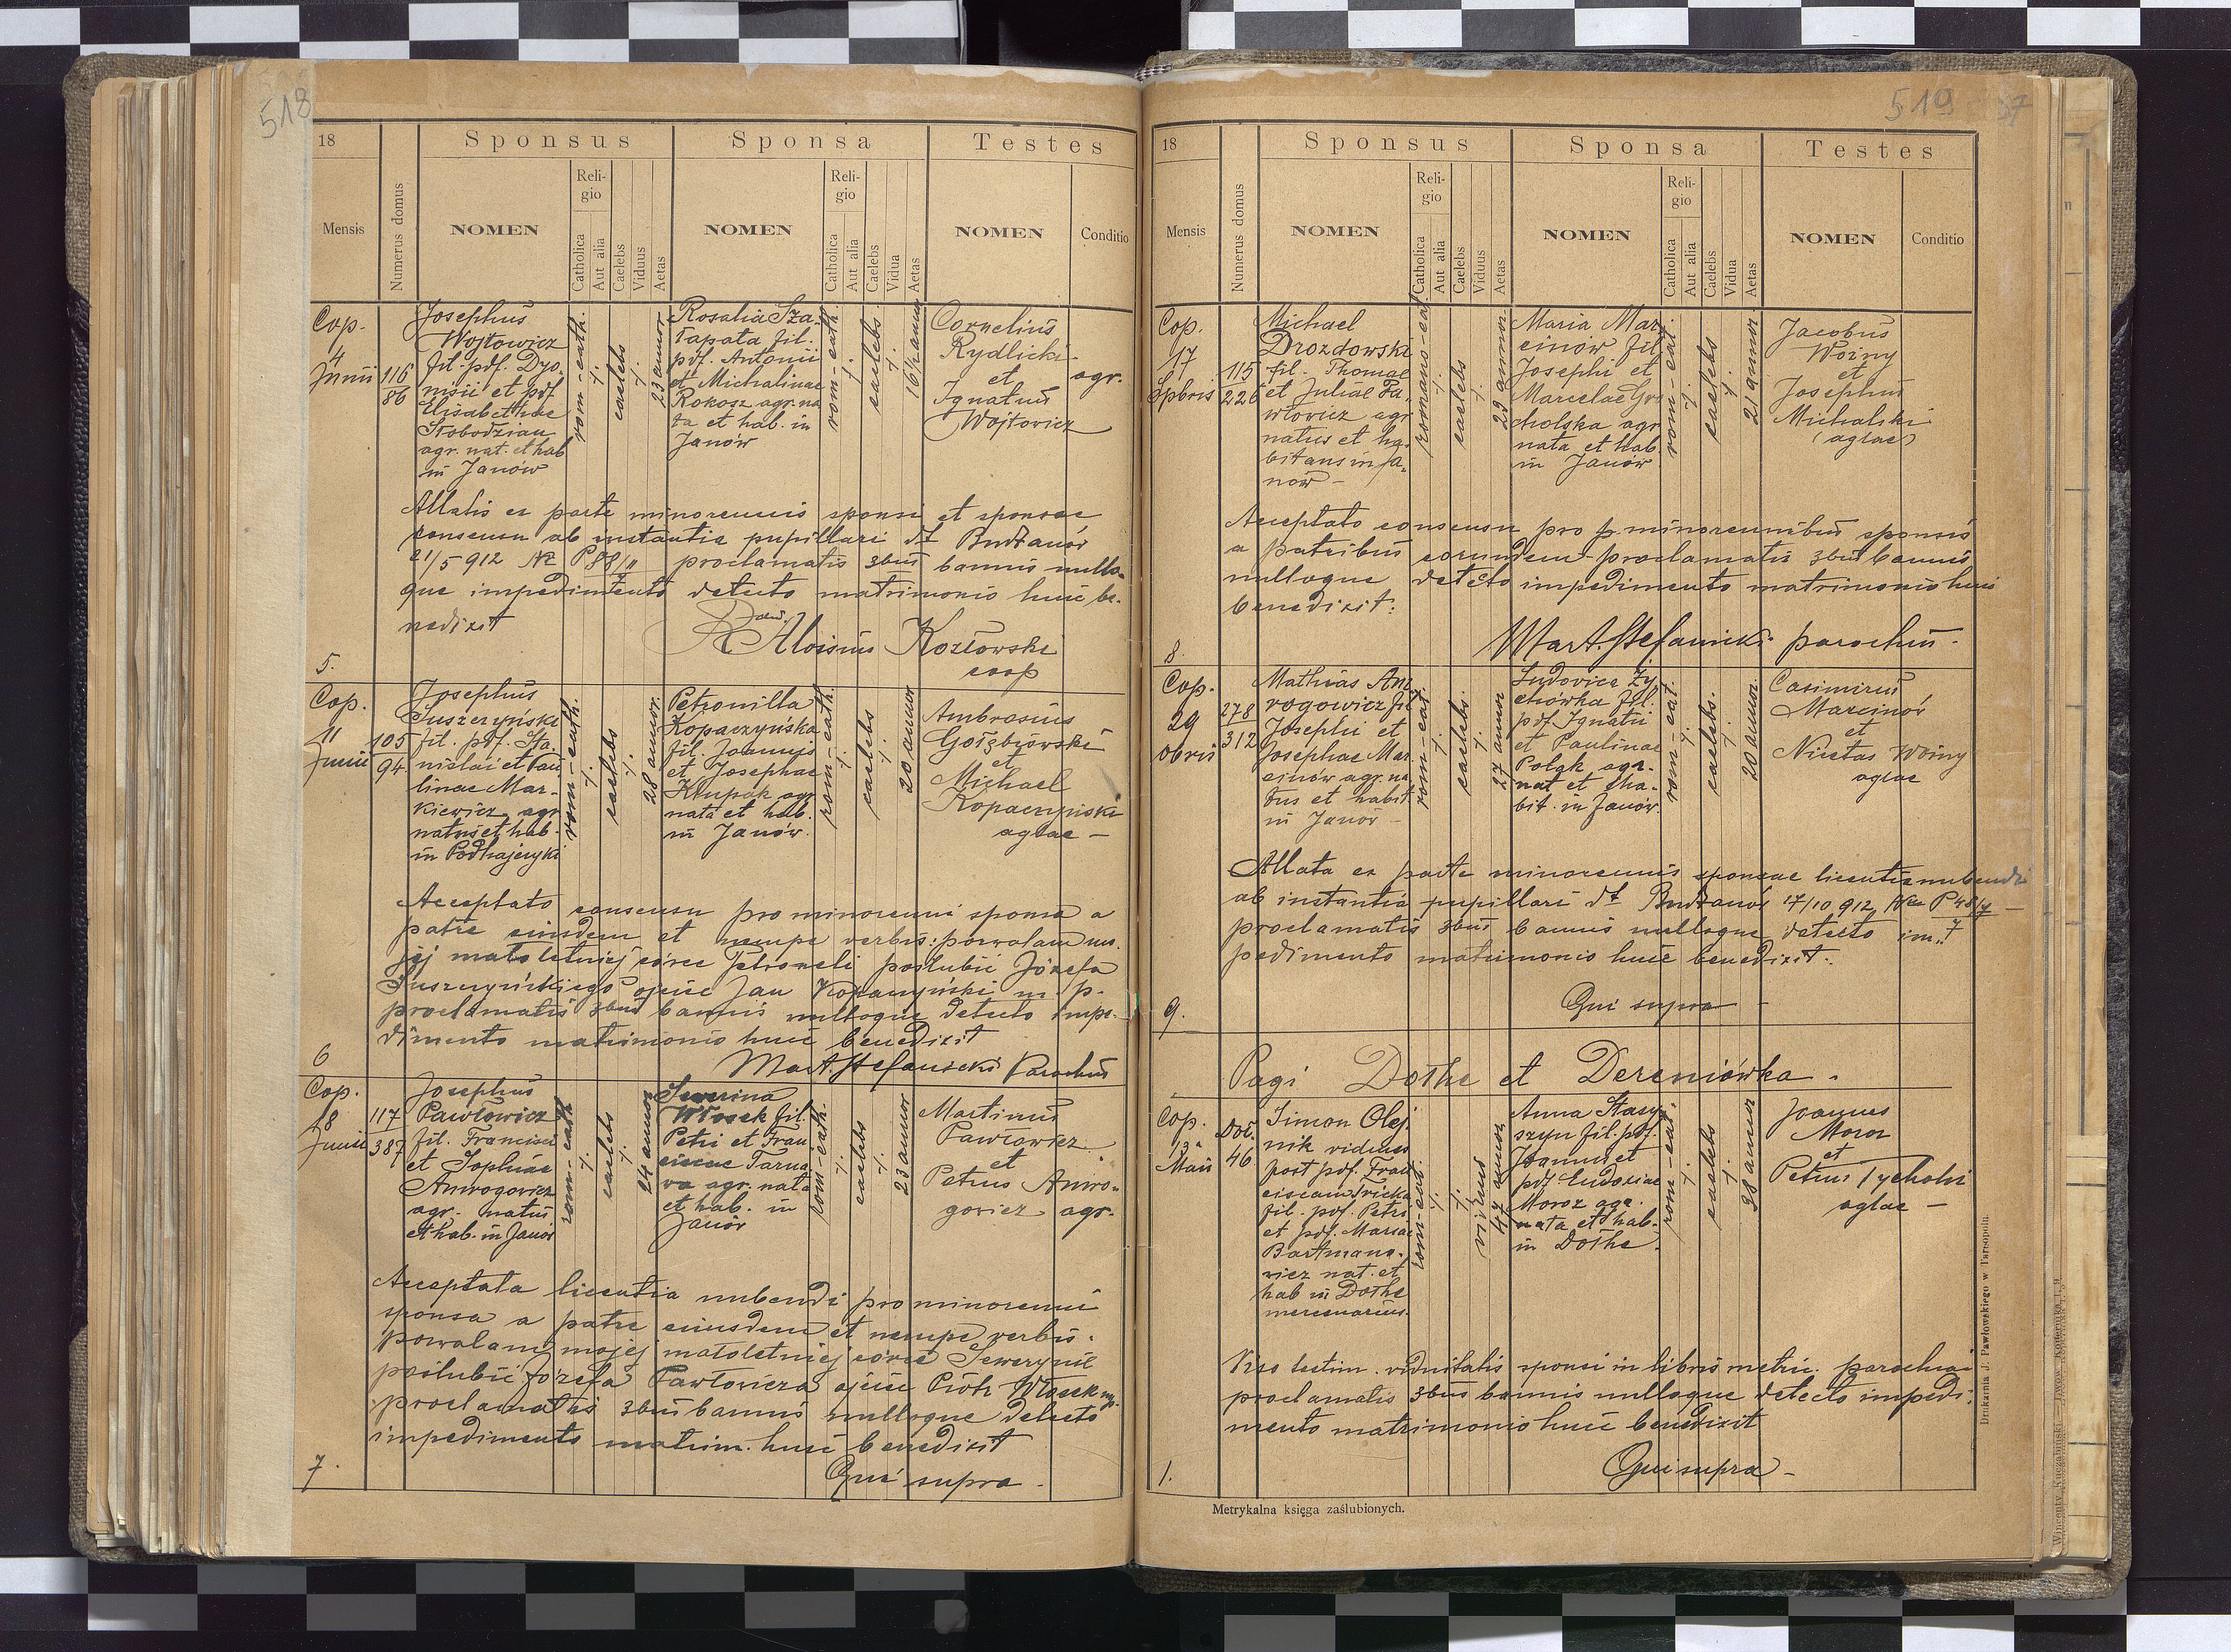 518
18
Sponsus
Sponsa
Testes
Mensis
Numerus domus
NOMEN
Reli-
gio
Catholica
Aut alia
Caelebs
Viduus
Aetas
NOMEN
Reli-
gio
Catholica
Aut alia
Caelebs
Vidua
Aetas
NOMEN
Conditio
Cop.
4
Junii
116
86
Josephus
Wojtowicz
fil. pdf. Dyo-
nisii et pdf
Elisabethae
Słobodzian
agr. nat. et hab
in Janów
rom-cath.
caelebs
23 annor
Rosalia Sza-
łapata fil.
pdf. Antonii
et Michalinae
Rokosz agr. na
ta et hab. in
Janów
rom-cath.
caelebs
16½ annor
Cornelius
Rydlicki
et
Ignatius
Wojtowicz
agr.
Allatis ex parte minorennis sponsi et sponsae
consensu ab instantia pupillari dt Budzanów
21/5 912 Nr P 88/11
7
proclamatis 3bus bannis nullo-
que impedimento detecto matrimonio huic be-
nedixit
Aloisius Kozłowski
coop
5.
Cop.
11
Junii
105
94
Josephus
Suszczyński
fil. pdf. Sta-
nislai et Pau
linae Mar-
kiewicz agr
natus et hab.
in Podhajczyki
rom-cath.
caelebs
28 annor.
Petronilla
Kopaczyńska
fil. Joannis
et Josephae
Krupak agr
nata et hab.
in Janów.
rom-cath.
caelebs
20 annor
Ambrosius
Gołębiowski
et
Michael
Kopaczyński
aglae –
Acceptato consensu pro minorenni sponsa a
patre eiusdem et nempe verbis: pozwalam mo.
jej małoletniej córce Petroneli poślubić Józefa
Suszczyńskiego ojciec Jan Kopaczyński m. p.
proclamatis 3bus bannis nulloque detecto impe-
dimento matrimonio huic benedixit
Mart. Stefanicki Parochus
6
Cop.
18
Junii
117
387
Josephus
Pawłowicz
fil. Francisci
et Sophiae
Antrogowicz
agr. natus
et hab. in Janów
rom-cath
caelebs
24 annor
Severina
Włosek fil.
Petri et Fran
ciscae Tarna
wa agr. nata
et hab. in
Janów
rom-cath.
caelebs
23 annor
Martinus
Pawłowicz
et
Petrus Antro-
gowicz agr.
Acceptata licentia nubendi pro minorenni
sponsa a patre eiusdem et nempe verbis.
pozwalam mojej małoletniej córce Sewerynie
poślubić Józefa Pawłowicza ojciec Piotr Włosek mp.
proclamatis 3bus bannis nulloque detecto
impedimento matrim. huic benedixit
Qui supra –
7.
519
57
18
Sponsus
Sponsa
Testes
Mensis
Numerus domus
NOMEN
Reli-
gio
Catholica
Aut alia
Caelebs
Viduus
Aetas
NOMEN
Reli-
gio
Catholica
Aut alia
Caelebs
Vidua
Aetas
NOMEN
Conditio
Cop.
17
9bris
115
226
Michael
Drozdowski
fil. Thomae
et Juliae Pa-
włowicz agr
natus et ha-
bitans in Ja-
nów –
romano-cat.
caelebs
29 annor.
Maria Mar-
cinów fil.
Josephi et
Marcelae Gro
cholska agr
nata et hab.
in Janów
rom-cat.
caelebs
21 annor
Jacobus
Woiny
et
Josephus
Michalski
(aglae)
Acceptato consensu pro p. minorennibus sponsis
a patribus eorundem proclamatis 3bus bannis
nulloque detecto impedimento matrimonio huic
benedixit:
Mart. Stefanicki parochus
8.
Cop.
29
Obris
278
312
Mathias Ant
rogowicz fil
Josephi et
Josephae Mar
cinów agr. na
tus et habit
in Janów –
rom-cat.
caelebs.
27 annor
Ludovica Zy
chówka fil.
pdf Ignatii
et Paulinae
Polak agr.
nat et ha-
bit. in Janów.
rom-cat.
caelebs.
20 annor.
Casimirus
Marcinów
et
Nicetas Woiny
aglae
Allata ex parte minorennis sponsae licentia nubendi
ab instantia pupillari dt Budzanów 17/10 912 Nr P 48/7 –
7
proclamatis 3bus bannis nulloque detecto im-
pedimento matrimonio huic benedixit.
Qui supra –
9.
Pagi Dołhe et Dereniówka.
Cop.
13a
Maii
Doł.
46
Simon Olej
nik viduus
post pdf. Fran
ciscam Fricka
fil. pdf. Petri
et pdf. Mariae
Bartmano-
wicz nat. et
hab in Dołhe
mercenarius.
rom-cat.
viduus
47 annor
Anna Stasy
szyn fil. pdf.
Joannis et
pdf. Eudoxiae
Moroz agr.
nata et hab.
in Dołhe.
rom-cat.
caelebs
38 annor
Joannes
Moroz
et
Petrus Tycholis
aglae –
Viso testim. viduitatis sponsi in libris metric. parochiae
proclamatis 3bus bannis nulloque detecto impedi-
mento matrimonio huic benedixit
Qui supra –
1.
Metrykalna księga zaślubionych.
Drukarnia J. Pawłowskiego w Tarnopolu.